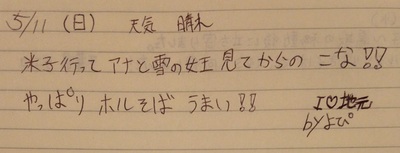 5/11 (日) 天気 晴れ
米子行って アナと雪の女王 見てからの こな!!
やっぱり ホルそば うまい!!
I♡地元
byよぴ